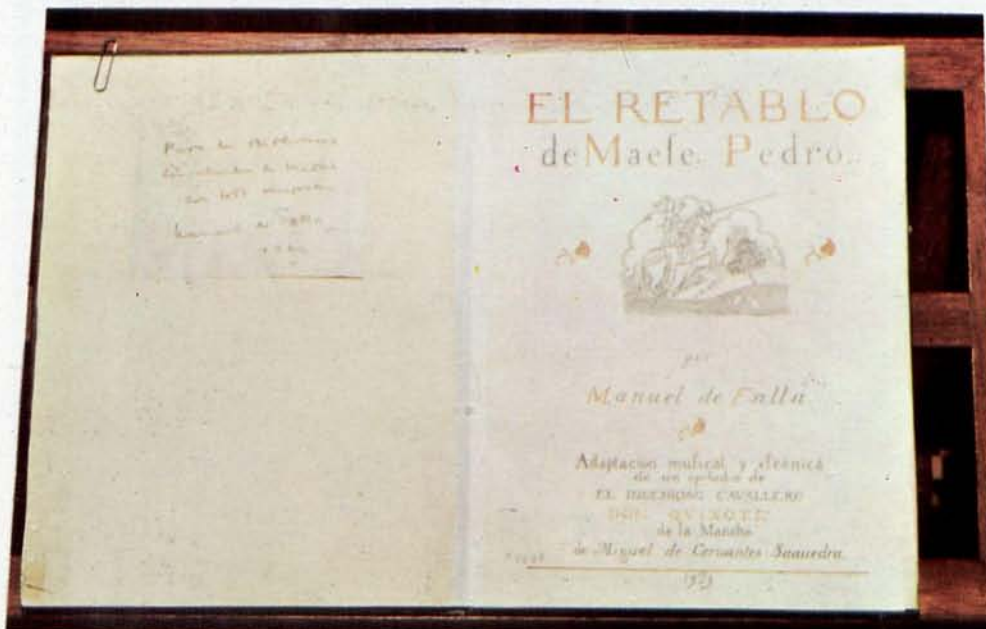 Para la Biblioteca
Manuel de Falla
EL RETABLO
de Maese Pedro
por
Manuel de Falla
Adaptacion musical y escénica
de un episodio de
EL INGENIOSO CAVALLERO
DON QUIXOTE
de la Mancha
de Miguel de Cervantes Saauedra
1923